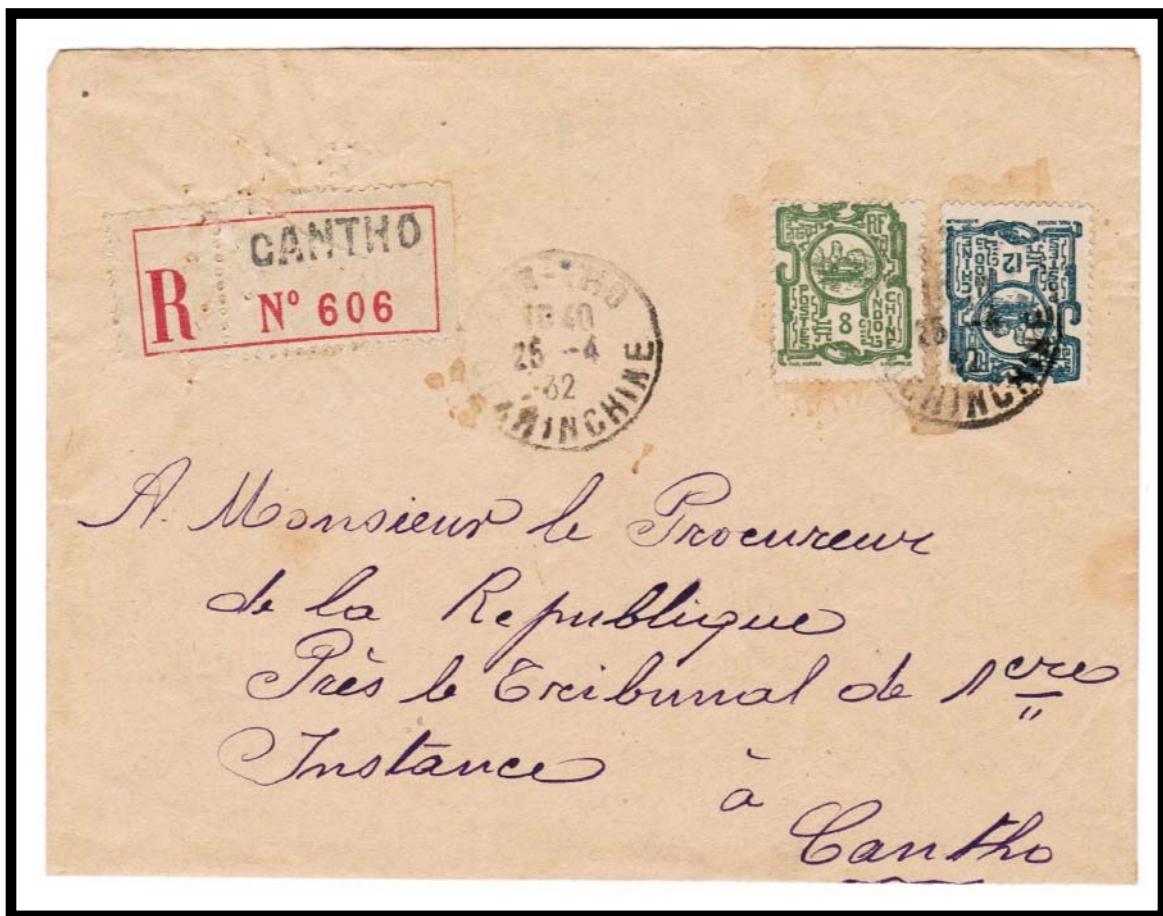 CANTHO
R N° 606
CAN-THO
18 40
25 -4
32
COCHINCHINE
RF
POSTES
INDO
CHINE
8
INDOCHINE
POSTES
12
25 -4
32
COCHINCHINE
A. Monsieur le Procureur
de la Republique
Près le Tribunal de 1ère
Instance
à
Cantho